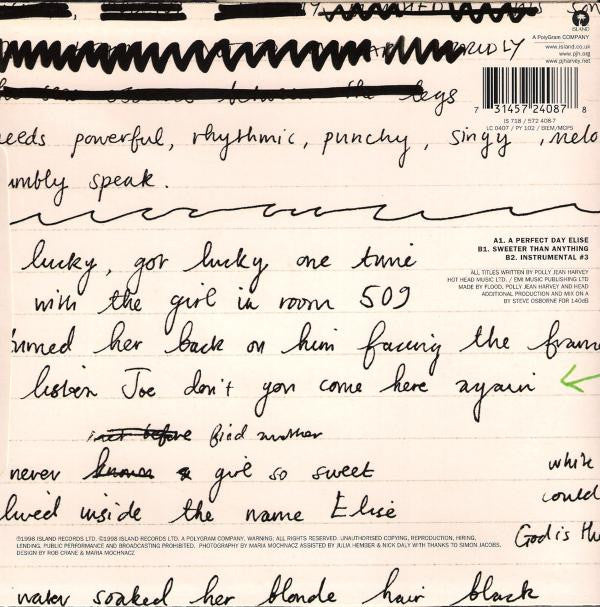 ISLAND
A PolyGram COMPANY
www.island.co.uk
www.pjh.org
www.pjharvey.net
RUDLY
the legs
7 31457 24087 8
IS 718 / 572 408-7
LC 0407 / PY 102 / BIEM/MCPS
eeds powerful, rhythmic, punchy, singy, melo
umbly speak.
A1. A PERFECT DAY ELISE
B1. SWEETER THAN ANYTHING
B2. INSTRUMENTAL #3
ALL TITLES WRITTEN BY POLLY JEAN HARVEY
HOT HEAD MUSIC LTD. / EMI MUSIC PUBLISHING LTD
MADE BY FLOOD, POLLY JEAN HARVEY AND HEAD
ADDITIONAL PRODUCTION AND MIX ON A
BY STEVE OSBORNE FOR 140dB
lucky, got lucky one time
with the girl in room 509
urned her back on him facing the frame
listen Joe don't you come here again
not before find another
never known a girl so sweet
lived inside the name Elise
white
could
God is th
℗1998 ISLAND RECORDS LTD. ©1998 ISLAND RECORDS LTD. A POLYGRAM COMPANY. WARNING: ALL RIGHTS RESERVED. UNAUTHORISED COPYING, REPRODUCTION, HIRING,
LENDING, PUBLIC PERFORMANCE AND BROADCASTING PROHIBITED. PHOTOGRAPHY BY MARIA MOCHNACZ ASSISTED BY JULIA HEMBER & NICK DALY WITH THANKS TO SIMON JACOBS.
DESIGN BY ROB CRANE & MARIA MOCHNACZ
water soaked her blonde hair black